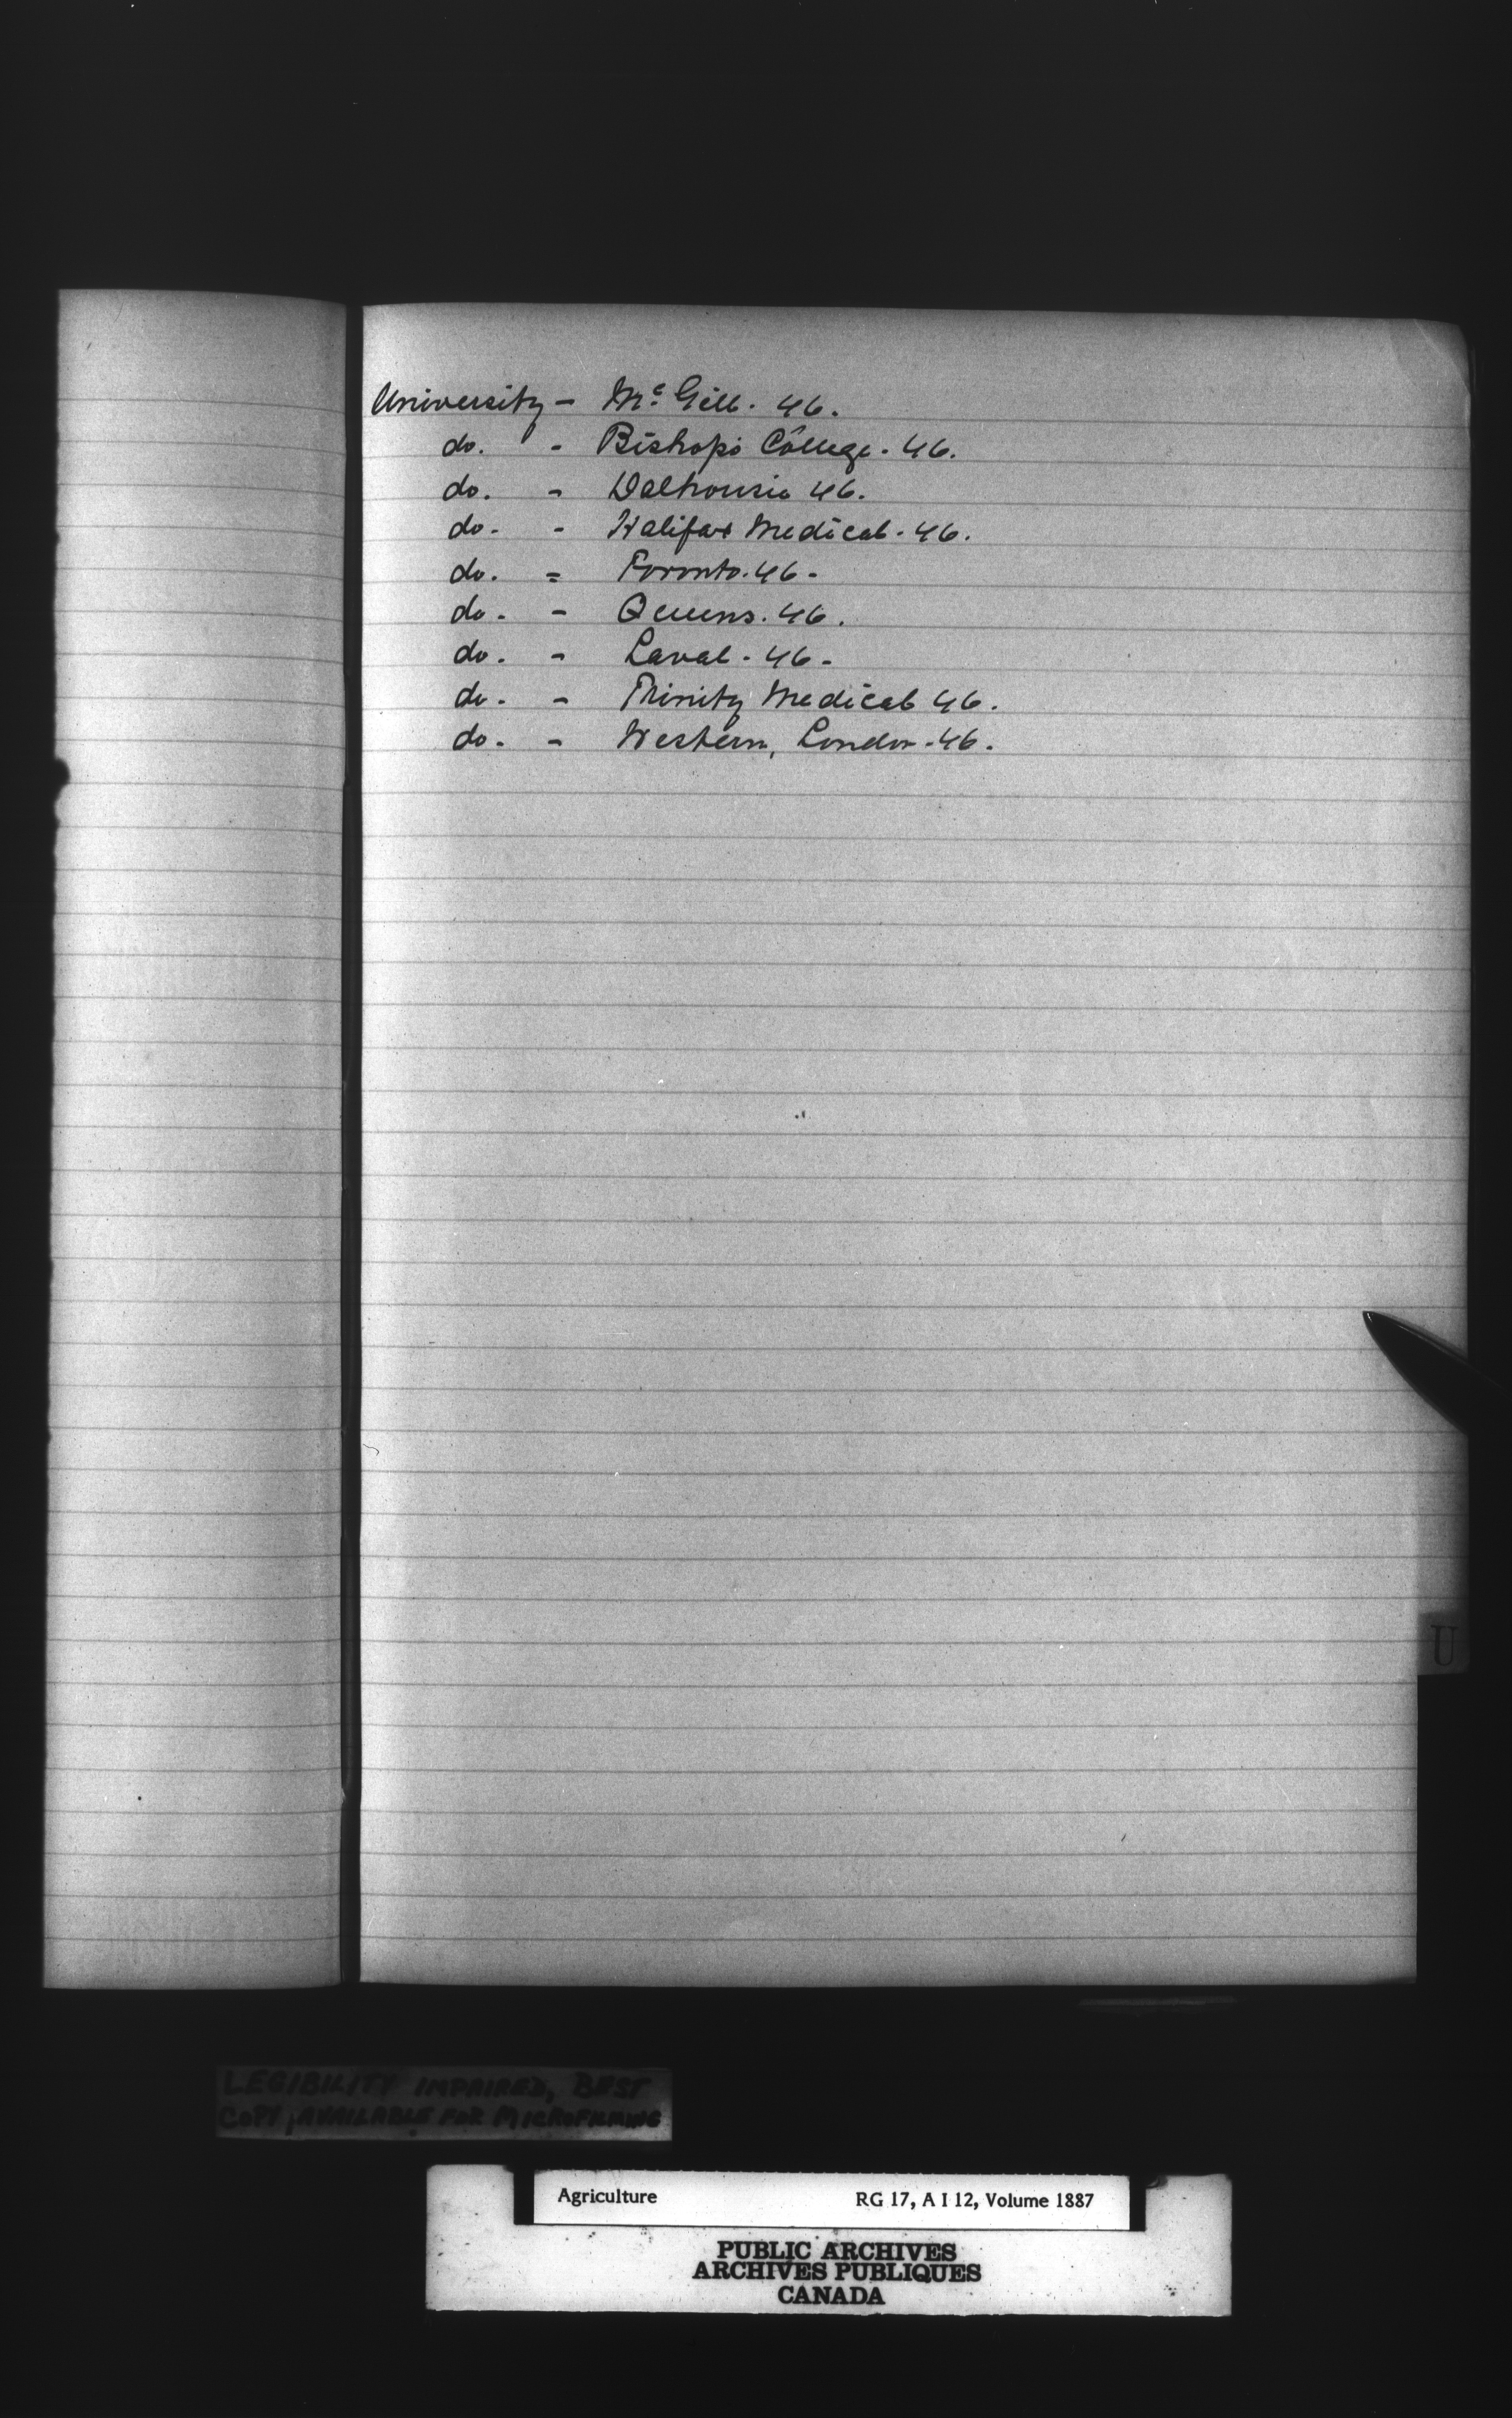 University - McGill. 46.
do. - Bishops College. 46.
do. - Dalhousie 46.
do. - Halifax Medical. 46.
do. = Toronto. 46.
do. - Queens. 46.
do. - Laval. 46.
do. - Trinity Medical 46.
do. - Western, London. 46.
U
LEGIBILITY IMPAIRED, BEST
COPY AVAILABLE FOR MICROFILMING
Agriculture RG 17, A I 12, Volume 1887
PUBLIC ARCHIVES
ARCHIVES PUBLIQUES
CANADA